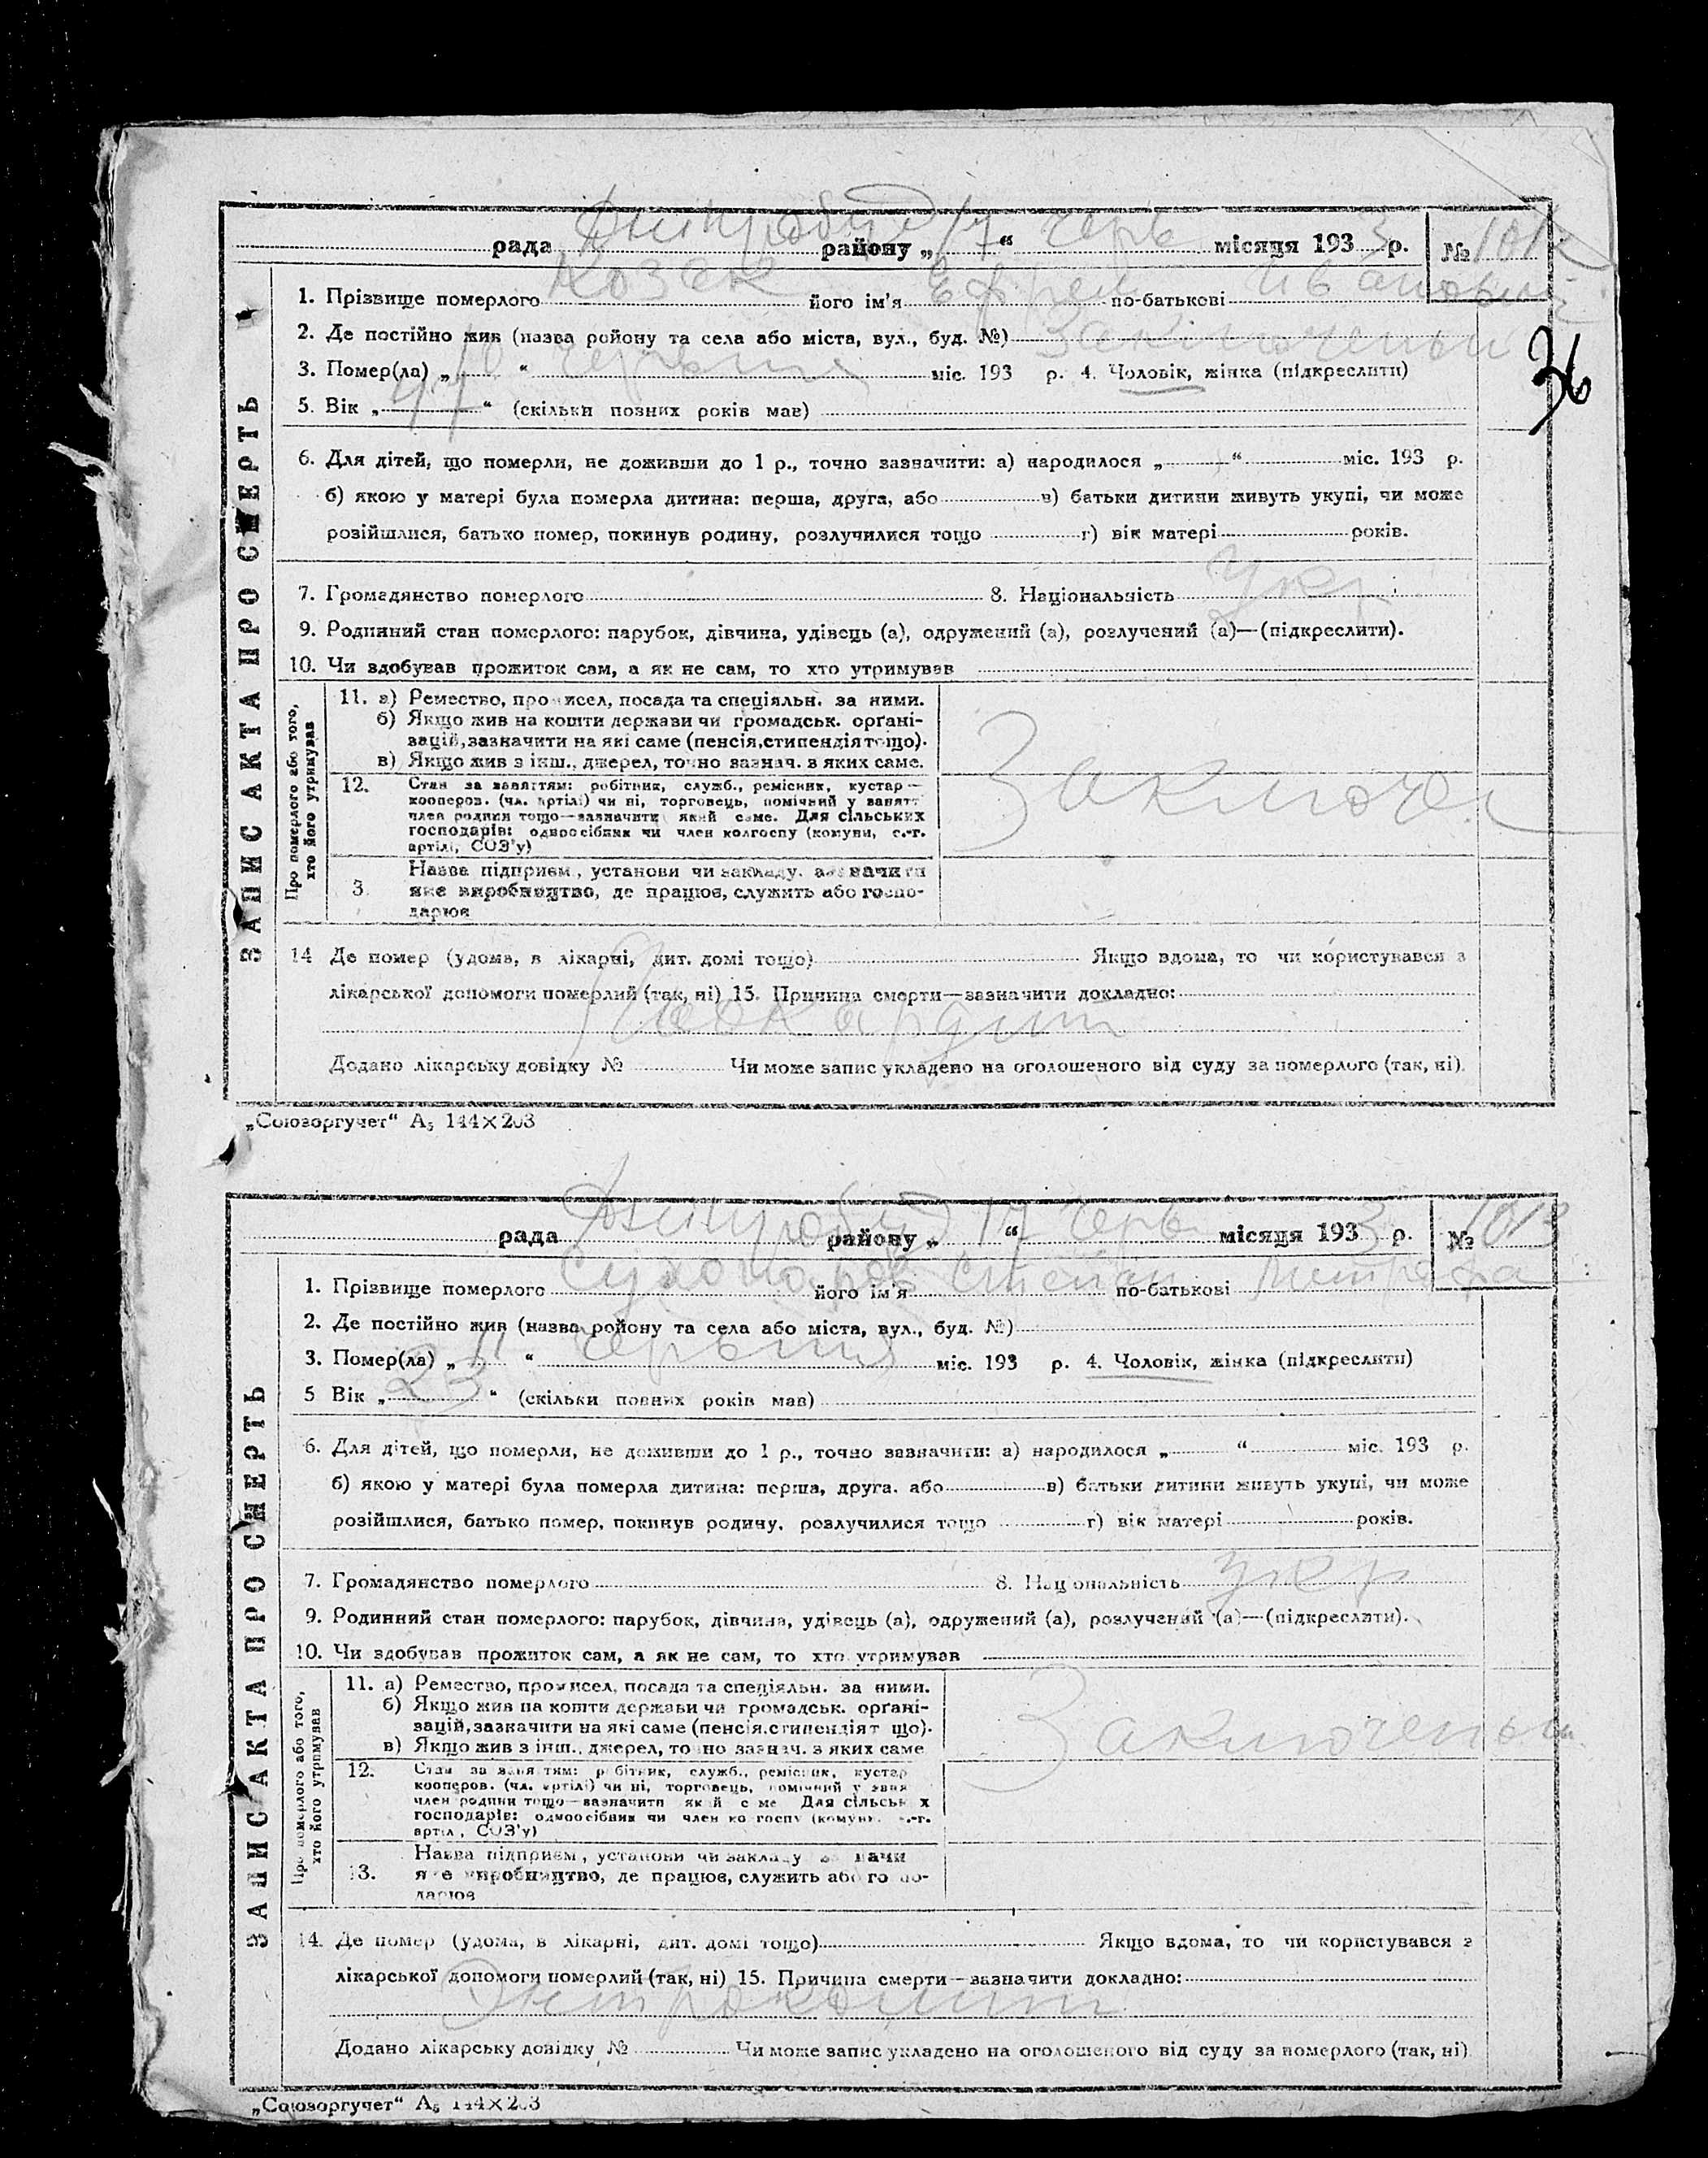 рада Дніпробуд району „ 17 “ черв місяця 193 3 р. № 1012
1. Прізвище померлого Козак його ім'я Ефрем по-батькові Иванович
2. Де постійно жив (назва району та села або міста, вул., буд. №) Заключеный
36
3. Помер(ла) „ “ червня міс. 193 р. 4. Чоловік, жінка (підкреслити)
5. Вік „ 47 “ (скільки повних років мав)
6. Для дітей, що померли, не доживши до 1 р., точно зазначити: а) народилося „ “ міс. 193 р.
б) якою у матері була померла дитина: перша, друга, або в) батьки дитини живуть укупі, чи може
розійшлися, батько помер, покинув родину, розлучилися тощо г) вік матері років.
7. Громадянство померлого 8. Національність укр
9. Родинний стан померлого: парубок, дівчина, удівець (а), одружений (а), розлучений (а)—(підкреслити).
10. Чи здобував прожиток сам, а як не сам, то хто утримував
ЗАПИС АКТА ПРО СМЕРТЬ
Про померлого або того,
хто його утримував
11. а) Ремество, промисел, посада та спеціяльн. за ними.
б) Якщо жив на кошти держави чи громадськ. орґані-
зацій, зазначити на які саме (пенсія, стипендія тощо).
в) Якщо жив з інш., джерел, точно зазнач. з яких саме.
Заключен
12. Стан за заняттям: робітник, служб., ремісник, кустар—
кооперов. (чл. артілі) чи ні, торговець, помічний у занятт
член родини тощо—зазначити який саме. Для сільських
господарів: одноосібник чи член колгоспу (комуни, с.-г.
артілі, СОЗ'у)
3. Назва підприєм, установи чи закладу, зазначити
яке виробництво, де працює, служить або госпо-
дарює
14 Де помер (удома, в лікарні, дит. домі тощо) Якщо вдома, то чи користувався з
лікарської допомоги померлий (так, ні) 15. Причина смерти—зазначити докладно:
Миокардит
Додано лікарську довідку № Чи може запис укладено на оголошеного від суду за померлого (так, ні).
„Союзоргучет“ А5 144×203
рада Дніпробуд району „ 17 “ черв місяця 193 3 р. № 1013
1. Прізвище померлого його ім'я Степан по-батькові
2. Де постійно жив (назва району та села або міста, вул., буд. №)
3. Помер(ла) „ 11 “ червня міс. 193 р. 4. Чоловік, жінка (підкреслити)
5 Вік „ 23 “ (скільки повних років мав)
6. Для дітей, що померли, не доживши до 1 р., точно зазначити: а) народилося „ “ міс. 193 р.
б) якою у матері була померла дитина: перша, друга. або в) батьки дитини живуть укупі, чи може
розійшлися, батько помер, покинув родину, розлучилися тощо г) вік матері років.
7. Громадянство померлого 8. Національність укр
9. Родинний стан померлого: парубок, дівчина, удівець (а), одружений (а), розлучений (а)—(підкреслити).
10. Чи здобував прожиток сам, а як не сам, то хто утримував
ЗАПИС АКТА ПРО СМЕРТЬ
Про померлого або того,
хто його утримував
11. а) Ремество, промисел, посада та спеціяльн. за ними.
б) Якщо жив на кошти держави чи громадськ. орґані-
зацій, зазначити на які саме (пенсія, стипендія тощо).
в) Якщо жив з інш., джерел, точно зазнач. з яких саме
Заключеный
12. Стан за заняттям: робітник, служб., ремісник, кустар
кооперов. (чл. артілі) чи ні, торговець, помічний у заня
член родини тощо—зазначити який саме Для сільських
господарів: одноосібник чи член колгоспу (комуни, с.-г.
артіл, СОЗ'у)
13. Назва підприєм, установи чи закладу зазначи
яке виробництво, де працює, служить або госпо-
дарює
14. Де помер (удома, в лікарні, дит. домі тощо) Якщо вдома, то чи користувався з
лікарської допомоги померлий (так, ні) 15. Причина смерти—зазначити докладно:
Энтероколит
Додано лікарську довідку № Чи може запис укладено на оголошеного від суду за померлого (так, ні)
„Союзоргучет“ А5 144×203